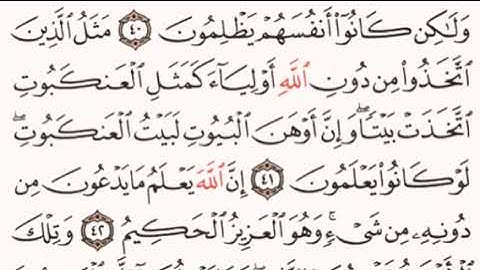 وَلَٰكِن كَانُوٓا۟ أَنفُسَهُمْ يَظْلِمُونَ ۝٤٠ مَثَلُ ٱلَّذِينَ
ٱتَّخَذُوا۟ مِن دُونِ ٱللَّهِ أَوْلِيَآءَ كَمَثَلِ ٱلْعَنكَبُوتِ
ٱتَّخَذَتْ بَيْتًۭا ۖ وَإِنَّ أَوْهَنَ ٱلْبُيُوتِ لَبَيْتُ ٱلْعَنكَبُوتِ ۖ
لَوْ كَانُوا۟ يَعْلَمُونَ ۝٤١ إِنَّ ٱللَّهَ يَعْلَمُ مَا يَدْعُونَ مِن
دُونِهِۦ مِن شَىْءٍۢ ۚ وَهُوَ ٱلْعَزِيزُ ٱلْحَكِيمُ ۝٤٢ وَتِلْكَ